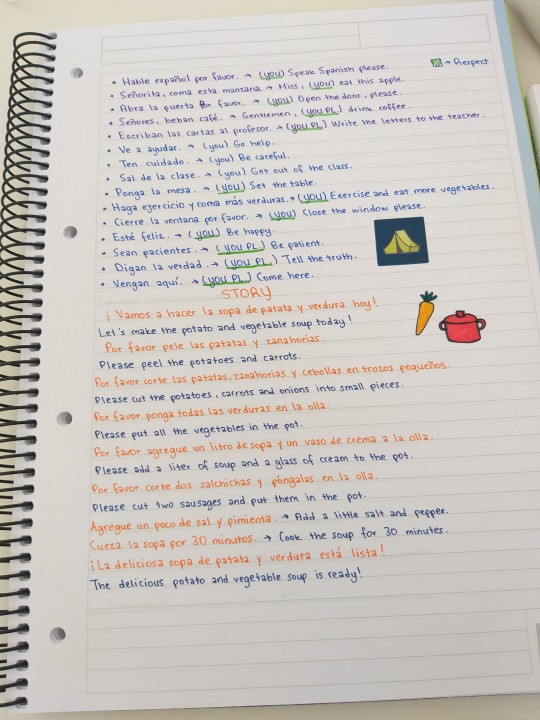 • Hable español por favor. → (you) Speak Spanish please.
→ Respect
• Señorita, coma esta manzana → Miss, (you) eat this apple.
• Abra la puerta por favor. → (you) Open the door, please.
• Señores, beban café. → Gentlemen, (you PL.) drink coffee.
• Escriban las cartas al profesor. → (you PL) Write the letters to the teacher.
• Ve a ayudar. → (you) Go help.
• Ten cuidado. → (you) Be careful.
• Sal de la clase. → (you) Get out of the class.
• Ponga la mesa. → (you) Set the table.
• Haga ejercicio y coma más verduras. → (you) Exercise and eat more vegetables.
• Cierre la ventana por favor. → (you) Close the window please.
• Esté feliz. → (you) Be happy.
• Sean pacientes. → (you PL.) Be patient.
• Digan la verdad. → (you PL.) Tell the truth.
• Vengan aquí. → (you PL.) Come here.
STORY
¡Vamos a hacer la sopa de patata y verdura hoy!
Let's make the potato and vegetable soup today!
Por favor pele las patatas y zanahorias.
Please peel the potatoes and carrots.
Por favor corte las patatas, zanahorias y cebollas en trozos pequeños.
Please cut the potatoes, carrots and onions into small pieces.
Por favor ponga todas las verduras en la olla.
Please put all the vegetables in the pot.
Por favor agregue un litro de sopa y un vaso de crema a la olla.
Please add a liter of soup and a glass of cream to the pot.
Por favor corte dos salchichas y póngalas en la olla.
Please cut two sausages and put them in the pot.
Agregue un poco de sal y pimienta. → Add a little salt and pepper.
Cueza la sopa por 30 minutos. → Cook the soup for 30 minutes.
¡La deliciosa sopa de patata y verdura está lista!
The delicious potato and vegetable soup is ready!